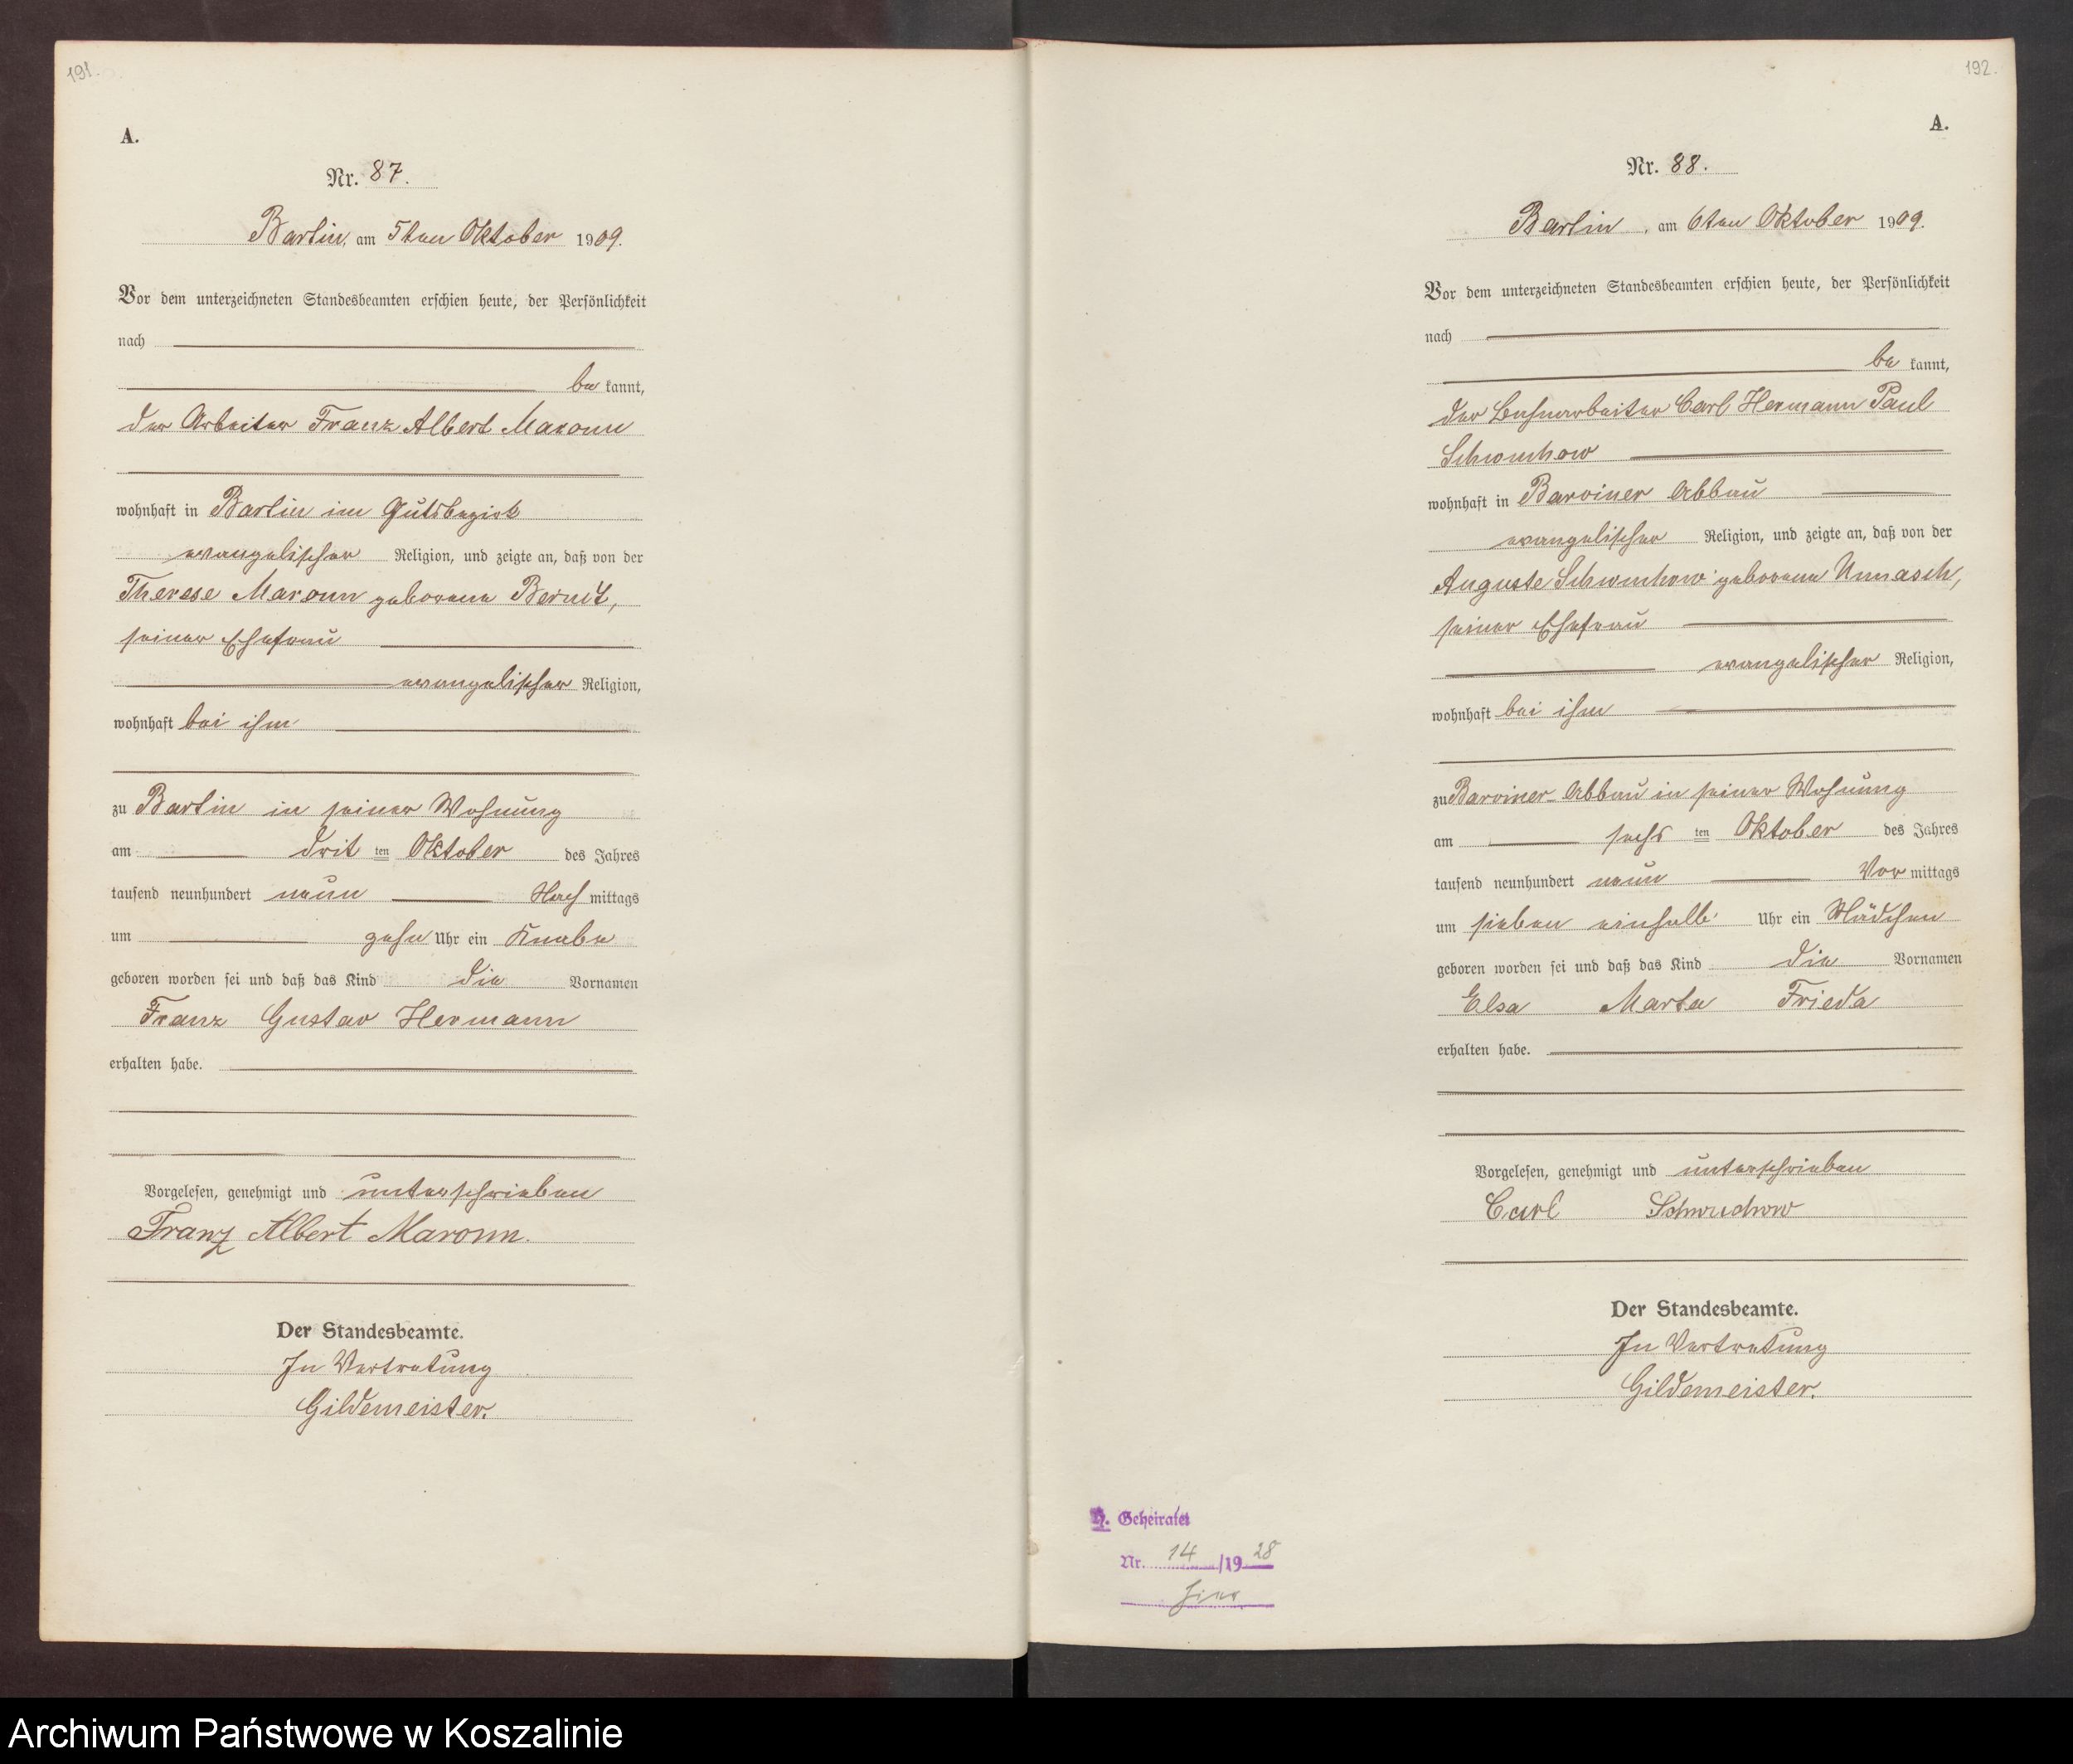 191.
A.
Nr. 87.
Bartin, am 5ten Oktober 1909.
Vor dem unterzeichneten Standesbeamten erschien heute, der Persönlichkeit
nach
be kannt,
der Arbeiter Franz Albert Maronn
wohnhaft in Bartin im Gutsbezirk
evangelischer Religion, und zeigte an, daß von der
Therese Maronn geborene
seiner Ehefrau
evangelischer Religion,
wohnhaft bei ihm
zu Bartin in seiner Wohnung
am drit ten Oktober des Jahres
tausend neunhundert neun Nach mittags
um zehn Uhr ein Knabe
geboren worden sei und daß das Kind die Vornamen
Franz Gustav Hermann
erhalten habe.
Vorgelesen, genehmigt und unterschrieben
Franz Albert Maronn.
Der Standesbeamte.
In Vertretung
Gildemeister.
192.
A.
Nr. 88.
Bartin, am 6ten Oktober 1909.
Vor dem unterzeichneten Standesbeamten erschien heute, der Persönlichkeit
nach
be kannt,
der Bahnarbeiter Carl Hermann Paul
Schwuchow
wohnhaft in Barviner Abbau
evangelischer Religion, und zeigte an, daß von der
Auguste Schwuchow geborene Unnasch,
seiner Ehefrau
evangelischer Religion,
wohnhaft bei ihm
zu Barviner Abbau in seiner Wohnung
am sechs ten Oktober des Jahres
tausend neunhundert neun Vor mittags
um sieben einhalb Uhr ein Mädchen
geboren worden sei und daß das Kind die Vornamen
Elsa Marta Frieda
erhalten habe.
Vorgelesen, genehmigt und unterschrieben
Carl Schwuchow
Der Standesbeamte.
In Vertretung
Gildemeister.
Geheiratet
Nr. 14/1928
hier
Archiwum Państwowe w Koszalinie